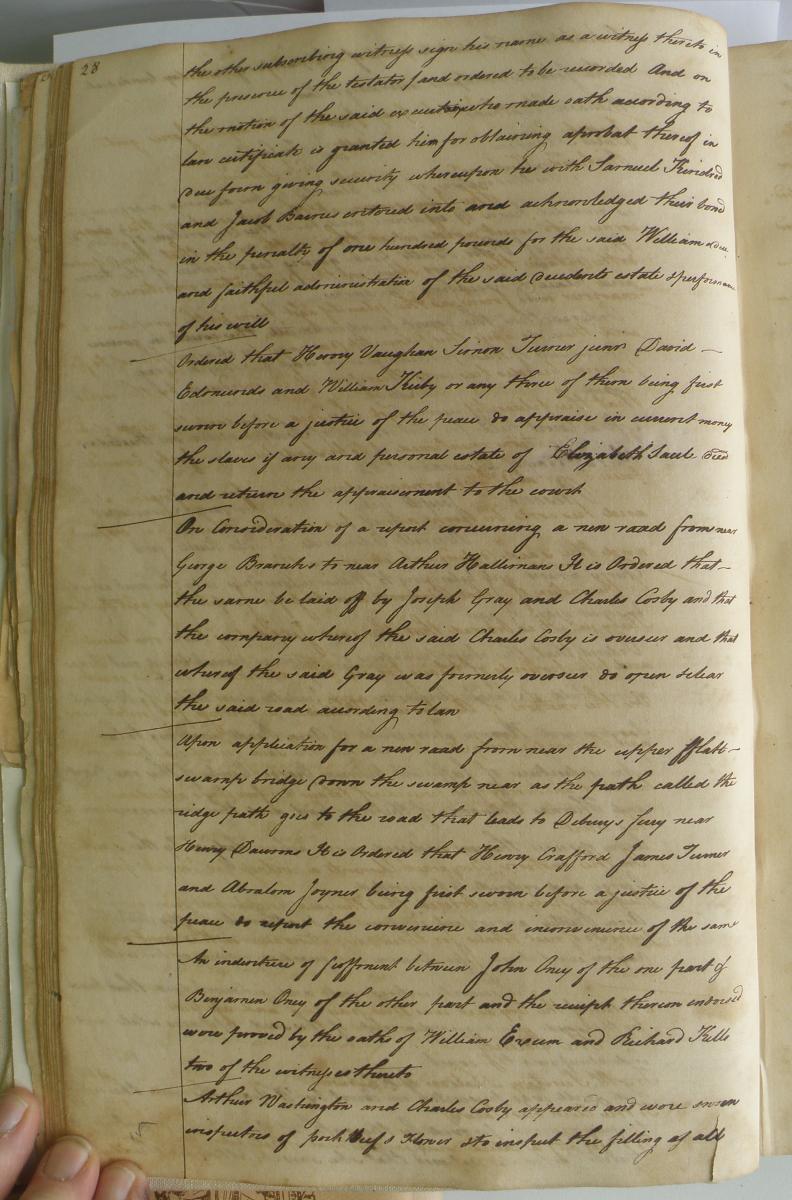 28
the other subscribing witness sign his name as a witness thereto in
the presence of the testator / and ordered to be recorded And on
the motion of the said executor who made oath according to
law certificate is granted him for obtaining a probat thereof in
due form giving security whereupon he with Samuel Kindred
and Jacob Barnes entered into and acknowledged their bond
in the penalty of one hundred pounds for the said William's due
and faithful administration of the said decedents estate & performance
of his will
Ordered that Henry Vaughan Simon Turner junr David
Edmunds and William Kirby or any three of them being first
sworn before a justice of the peace do appraise in current money
the slaves if any and personal estate of Elizabeth Saul decd
and return the appraisement to the court
On Consideration of a report concerning a new road from near
George Branch's to near Arthur It is Ordered that
the same be laid off by Joseph Gray and Charles Cosby and that
the company whereof the said Charles Cosby is overseer and that
whereof the said Gray was formerly overseer do open & clear
the said road according to law
Upon application for a new road from near the upper fflatt
swamp bridge down the swamp near as the path called the
ridge path goes to the road that leads to ferry near
Henry It is Ordered that Henry Crafford James Turner
and Absalom Joyner being first sworn before a justice of the
peace do report the convenience and inconvenience of the same
An indenture of feoffment between John Oney of the one part &
Benjamin Oney of the other part and the receipt thereon endorsed
were proved by the oaths of William Exum and Richard Kello
two of the witnesses thereto
Arthur Washington and Charles Cosby appeared and were sworn
inspectors of pork beef & flower & to inspect the filling of all